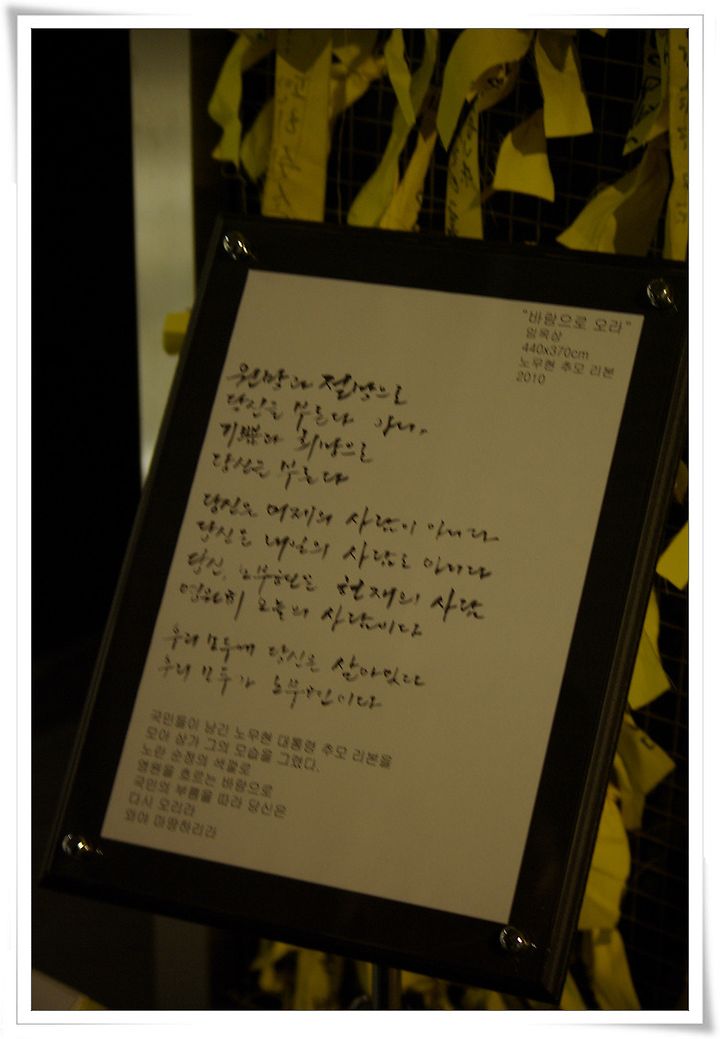 "바람으로 오라"
임옥상
440x370cm
노무현 추모 리본
2010
원망과 절망으로
당신을 부른다 아니,
기쁨과 희망으로
당신을 부른다
당신은 어제의 사람이 아니다
당신은 내일의 사람도 아니다
당신, 노무현은 현재의 사람
영원히 오늘의 사람이다
우리 모두에 당신은 살아있다
우리 모두가 노무현이다
국민들이 남긴 노무현 대통령 추모 리본을
모아 삼가 그의 모습을 그렸다.
노란 순정의 색깔로
영원을 흐르는 바람으로
국민의 부름을 따라 당신은
다시 오리라
와야 마땅하리라